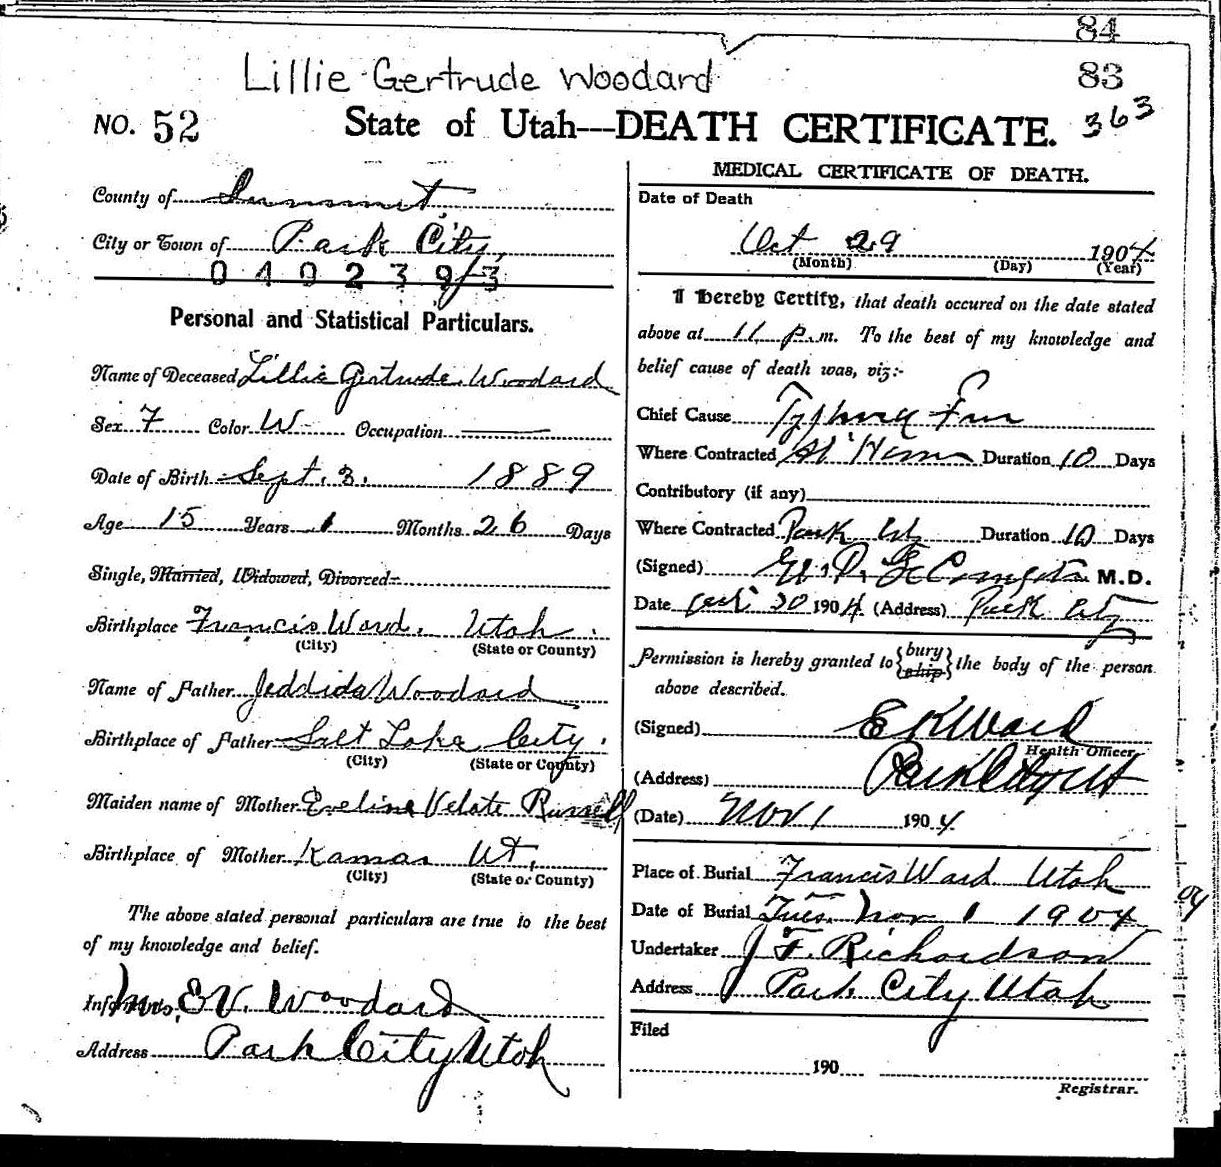 84
83
363
Lillie Gertrude Woodard
NO. 52 State of Utah---DEATH CERTIFICATE.
County of Summit,
City or Town of Park City,
0 4 0 2 3 9/3
Personal and Statistical Particulars.
Name of Deceased Lillie Gertrude Woodard
Sex F Color W Occupation
Date of Birth Sept. 3. 1889
Age 15 Years 1 Months 26 Days
Single, Married, Widowed, Divorced
Birthplace Francis Ward. Utah.
(City) (State or County)
Name of Father Jeddida Woodard
Birthplace of Father Salt Lake City.
(City) (State or County)
Maiden name of Mother Eveline Velate Russell
Birthplace of Mother Kamas Ut,
(City) (State or County)
The above stated personal particulars are true to the best
of my knowledge and belief.
Informant, Mrs. E V. Woodard
Address Park City Utah
MEDICAL CERTIFICATE OF DEATH.
Date of Death
Oct 29 1904
(Month) (Day) (Year)
I hereby Certify, that death occured on the date stated
above at 11 p.m. To the best of my knowledge and
belief cause of death was, viz:-
Chief Cause
Where Contracted At Home Duration 10 Days
Contributory (if any)
Where Contracted Park City Duration 10 Days
(Signed) M.D.
Date 30 1904 (Address) Park City
Permission is hereby granted to {bury
ship} the body of the person
above described.
(Signed) E K Ward
Health Officer
(Address) Park City Ut
(Date) Nov 1 1904
Place of Burial Francis Ward Utah
Date of Burial Tues. Nov 1 1904
Undertaker J F. Richardson
Address Park City Utah
Filed
190
Registrar.